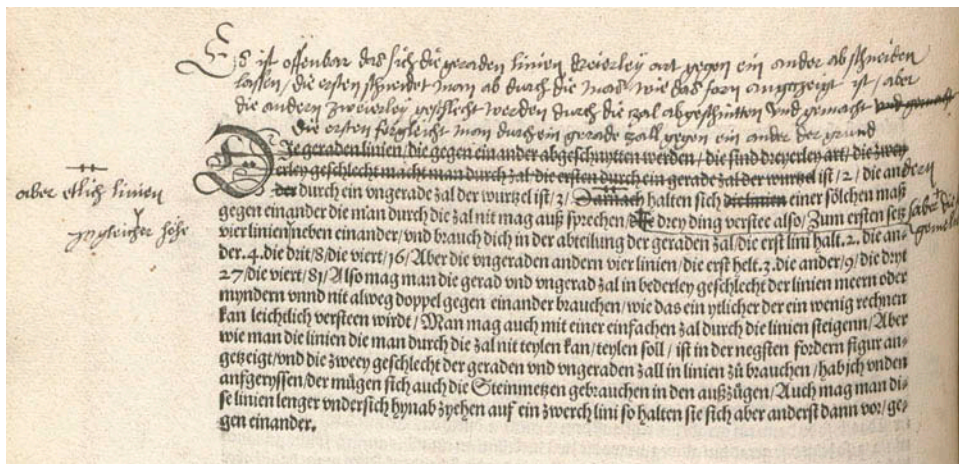 Es ist offenbar das sich die geraden linien dreierley art gegen ein ander abschneiden
lassen / die ersten schneidet man ab durch die mas, wie das forn angetzeigt ist / aber
die andern zweierley geschlecht werden durch die zal abgeschnitten vnd gemacht vnd gemacht
die ersten fergleicht man durch ein gerade zall gegen ein ander der grund
DIe geraden linien / die gegen einander abgeschnytten werden / die sind dreyerley art / die zwey
erley geschlecht macht man durch zal / die ersten durch ein gerade zal der wurtzel ist / 2 / die andern
der durch ein vngerade zal der wurtzel ist / 3 / Darnach halten sich die linien einer sölchen maß
aber etlich linien
gegen einander die man durch die zal nit mag auß sprechen / drey ding verstee also / Zum ersten setz
jn gleicher höhe
vier linien neben einander / vnd brauch dich in der abteilung der geraden zal / die erst lini halt .2. die an-
der .4. die drit / 8 / die viert / 16 / Aber die vngeraden andern vier linien / die erst helt .3. die ander / 9 / die dryt
27 / die viert / 81 / Also mag man die gerad vnd vngerad zal in bederley geschlecht der linien meern oder
myndern vnnd nit alweg doppel gegen einander brauchen / wie das ein ytlicher der ein wenig rechnen
kan leichtlich versteen wirdt / Man mag auch mit einer einfachen zal durch die linien steigenn / Aber
wie man die linien die man durch die zal nit teylen kan / teylen soll / ist in der negsten fordern figur an-
getzeigt / vnd die zweey geschlecht der geraden vnd vngeraden zall in linien zů brauchen / hab jch vnden
aufgeryssen / der mügen sich auch die Steinmetzen gebrauchen in den außzügen / Auch mag man di-
se linien lenger vndersich hynab zyehen auf ein zwerch lini so halten sie sich aber anderst dann vor / ge-
gen einander.